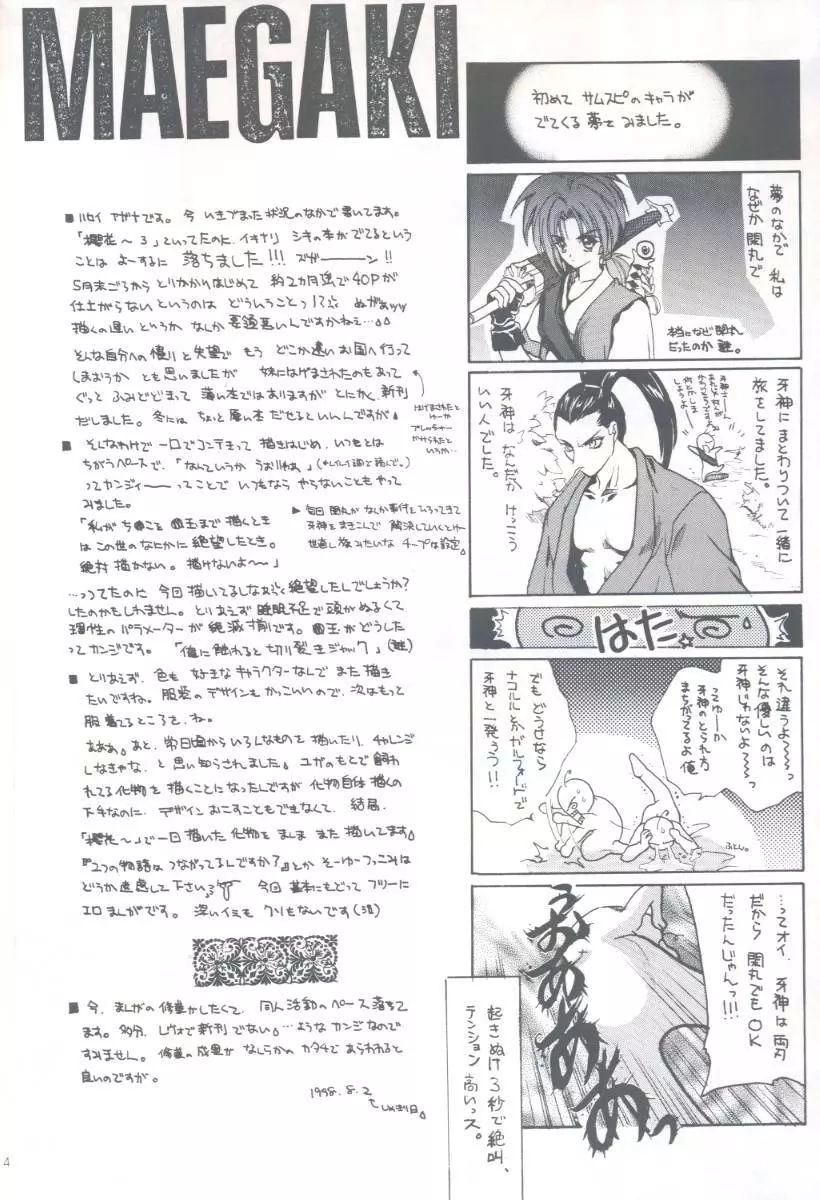 MAEGAKI
■ ハセイ アガナです。今 いきづまった状況のなかで書いてます。
「櫻花〜3」といってたのに、イキナリ シキの本がでてるという
ことは よーするに 落ちました!!! ズガーーーン!!
5月末ごろから とりかかりはじめて 約2カ月強で40Pが
仕上がらないというのは どういうことっ!?
描くの遅いというか なんか要領悪いんですかねぇ…
そんな自分への憤りと失望で もう どこか遠いお国へ行って
しまおうか とも思いましたが 妹にはげまされたのもあって
ぐっと ふみとどまって 薄い本ではありますが とにかく、新刊
だしました。冬には ちょっと厚い本 だせるといいんですが。
はげまされたと
ゆーか
プレッシャー
かけられたと
いうか…
■ そんなわけで 一日でコンテきって 描きはじめ、いつもとは
ちがうペースで、「なんていうか
ってカンジィーーーってことで いつもなら やらないことも やって
みました。
▶ 毎回 閑丸が なんか事件を ひろってきて
牙神をまきこんで 解決していくとゆー
世直し旅みたいな チープな設定。
「私が ち●こと ●玉まで 描くとき
は この世のなにかに 絶望したとき。
絶対 描かない。描けないよ〜〜」
…ってたのに 今回 描いてるしなぁ。絶望したんでしょうか?
したのかもしれません。とりあえず 睡眠不足で 頭が ぬるくて
理性の パラメーターが 絶滅寸前です。●玉がどうした
ってカンジです。「俺に触れると 切り裂きジャック」(謎)
■ とりあえず、色も 好きな キャラクターなんで また 描き
たいですね。服装の デザインも かっこいいので、次はもって
服 着てるところを、ね。
あああ。あと、常日頃から いろんなものを 描いたり、チャレンジ
しなきゃな、と 思い知らされました。ユガのもとで 飼わ
れてる化物を 描くことに なったんですが 化物自体 描くの
下手なのに、デザイン おこすことも できなくて、結局、
「櫻花〜」で 一日 描いた 化物を まんま また 描いてます。
『2つの物語は つながってるんですか?』とか そーゆーつっこみは
どうか 遠慮して 下さい。今回 基本にもどって フツーに
エロまんがです。深いイミも クソもないです(泣)
■ 今、まんがの 修業がしたくて、同人活動のペース 落ちて
ます。多分、レヴォで 新刊 でない。…ような カンジなので
すみません。修業の成果が なんらかの カタチで あらわれると
良いのですが。
1998.8.2
しめきり日。
初めて サムスピの キャラが
でてくる 夢を みました。
夢のなかで 私は
なぜか 閑丸で
本当になぜ 閑丸
だったのか 謎。
牙神に まとわりついて 一緒に
旅を してました。
牙神は なんだか けっこう
いい人でした。
はた☆
それ 違うよ〜〜〜っ
そんな優しいのは
牙神じゃないよ〜〜〜っ
ってゆーか
牙神の とられ方
まちがってるよ 俺
でも どうせなら
ナコルルとか ガルフォードで
牙神と 一発ぅう!!
ふとん。
…ってオイ、牙神は 両刃
だから 閑丸でも OK
だったんじゃんっ!!!
うおおあああぁっ
起きぬけ 3秒で 絶叫、
テンション 高いっス。
4